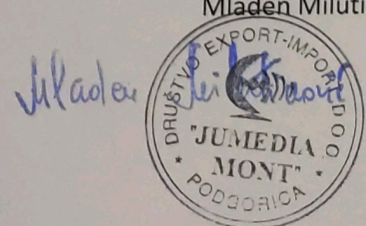 Mladen Miluti
Mladen
DRUŠTVO EXPORT-IMPORT DOO
"JUMEDIA
MONT"
PODGORICA